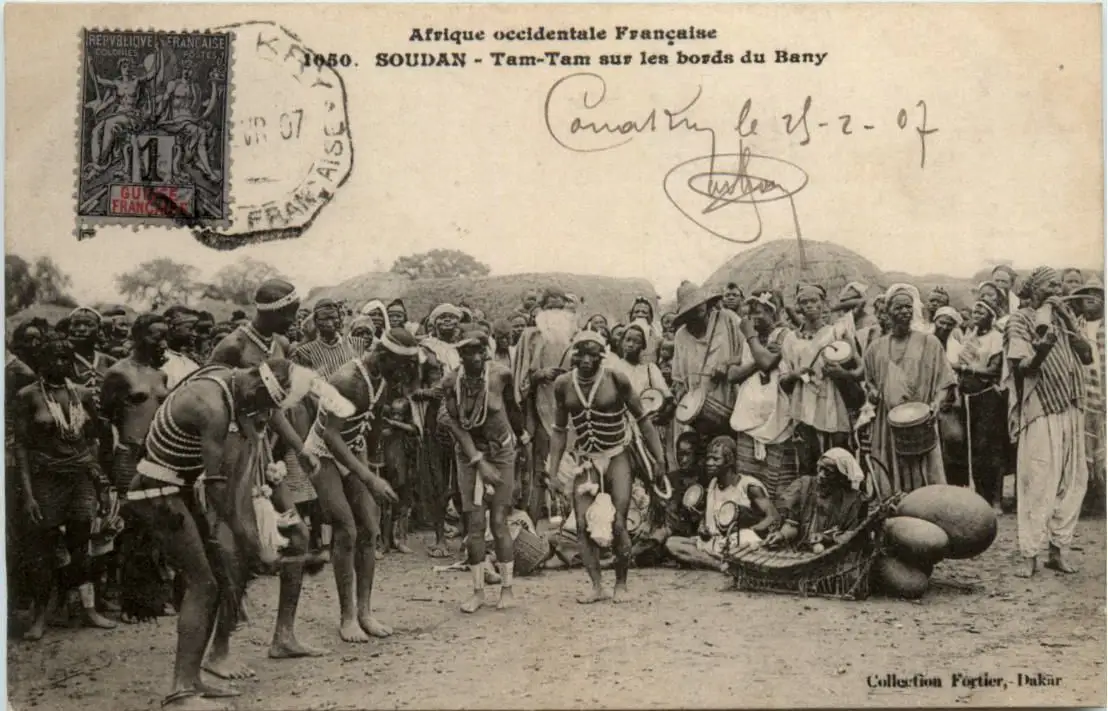 Afrique occidentale Française
1050. SOUDAN - Tam-Tam sur les bords du Bany
REPVBLIQVE FRANÇAISE
COLONIES POSTES
1
GUINÉE
FRANÇAISE
KRY
VR 07
FRANÇAISE
Conakry le 25-2-07
Collection Fortier, Dakar